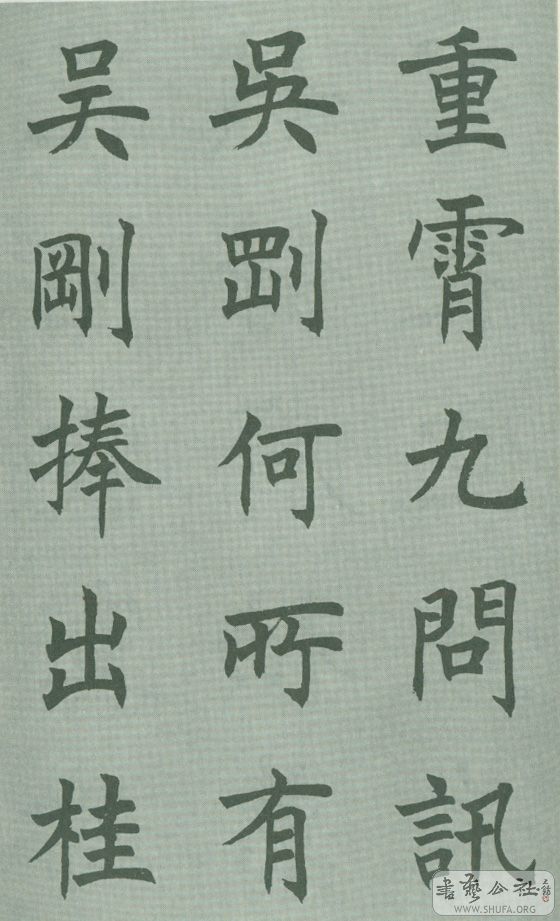 重霄九問訊
吳剛何所有
吴剛捧出桂
書藝公社
WWW.SHUFA.ORG